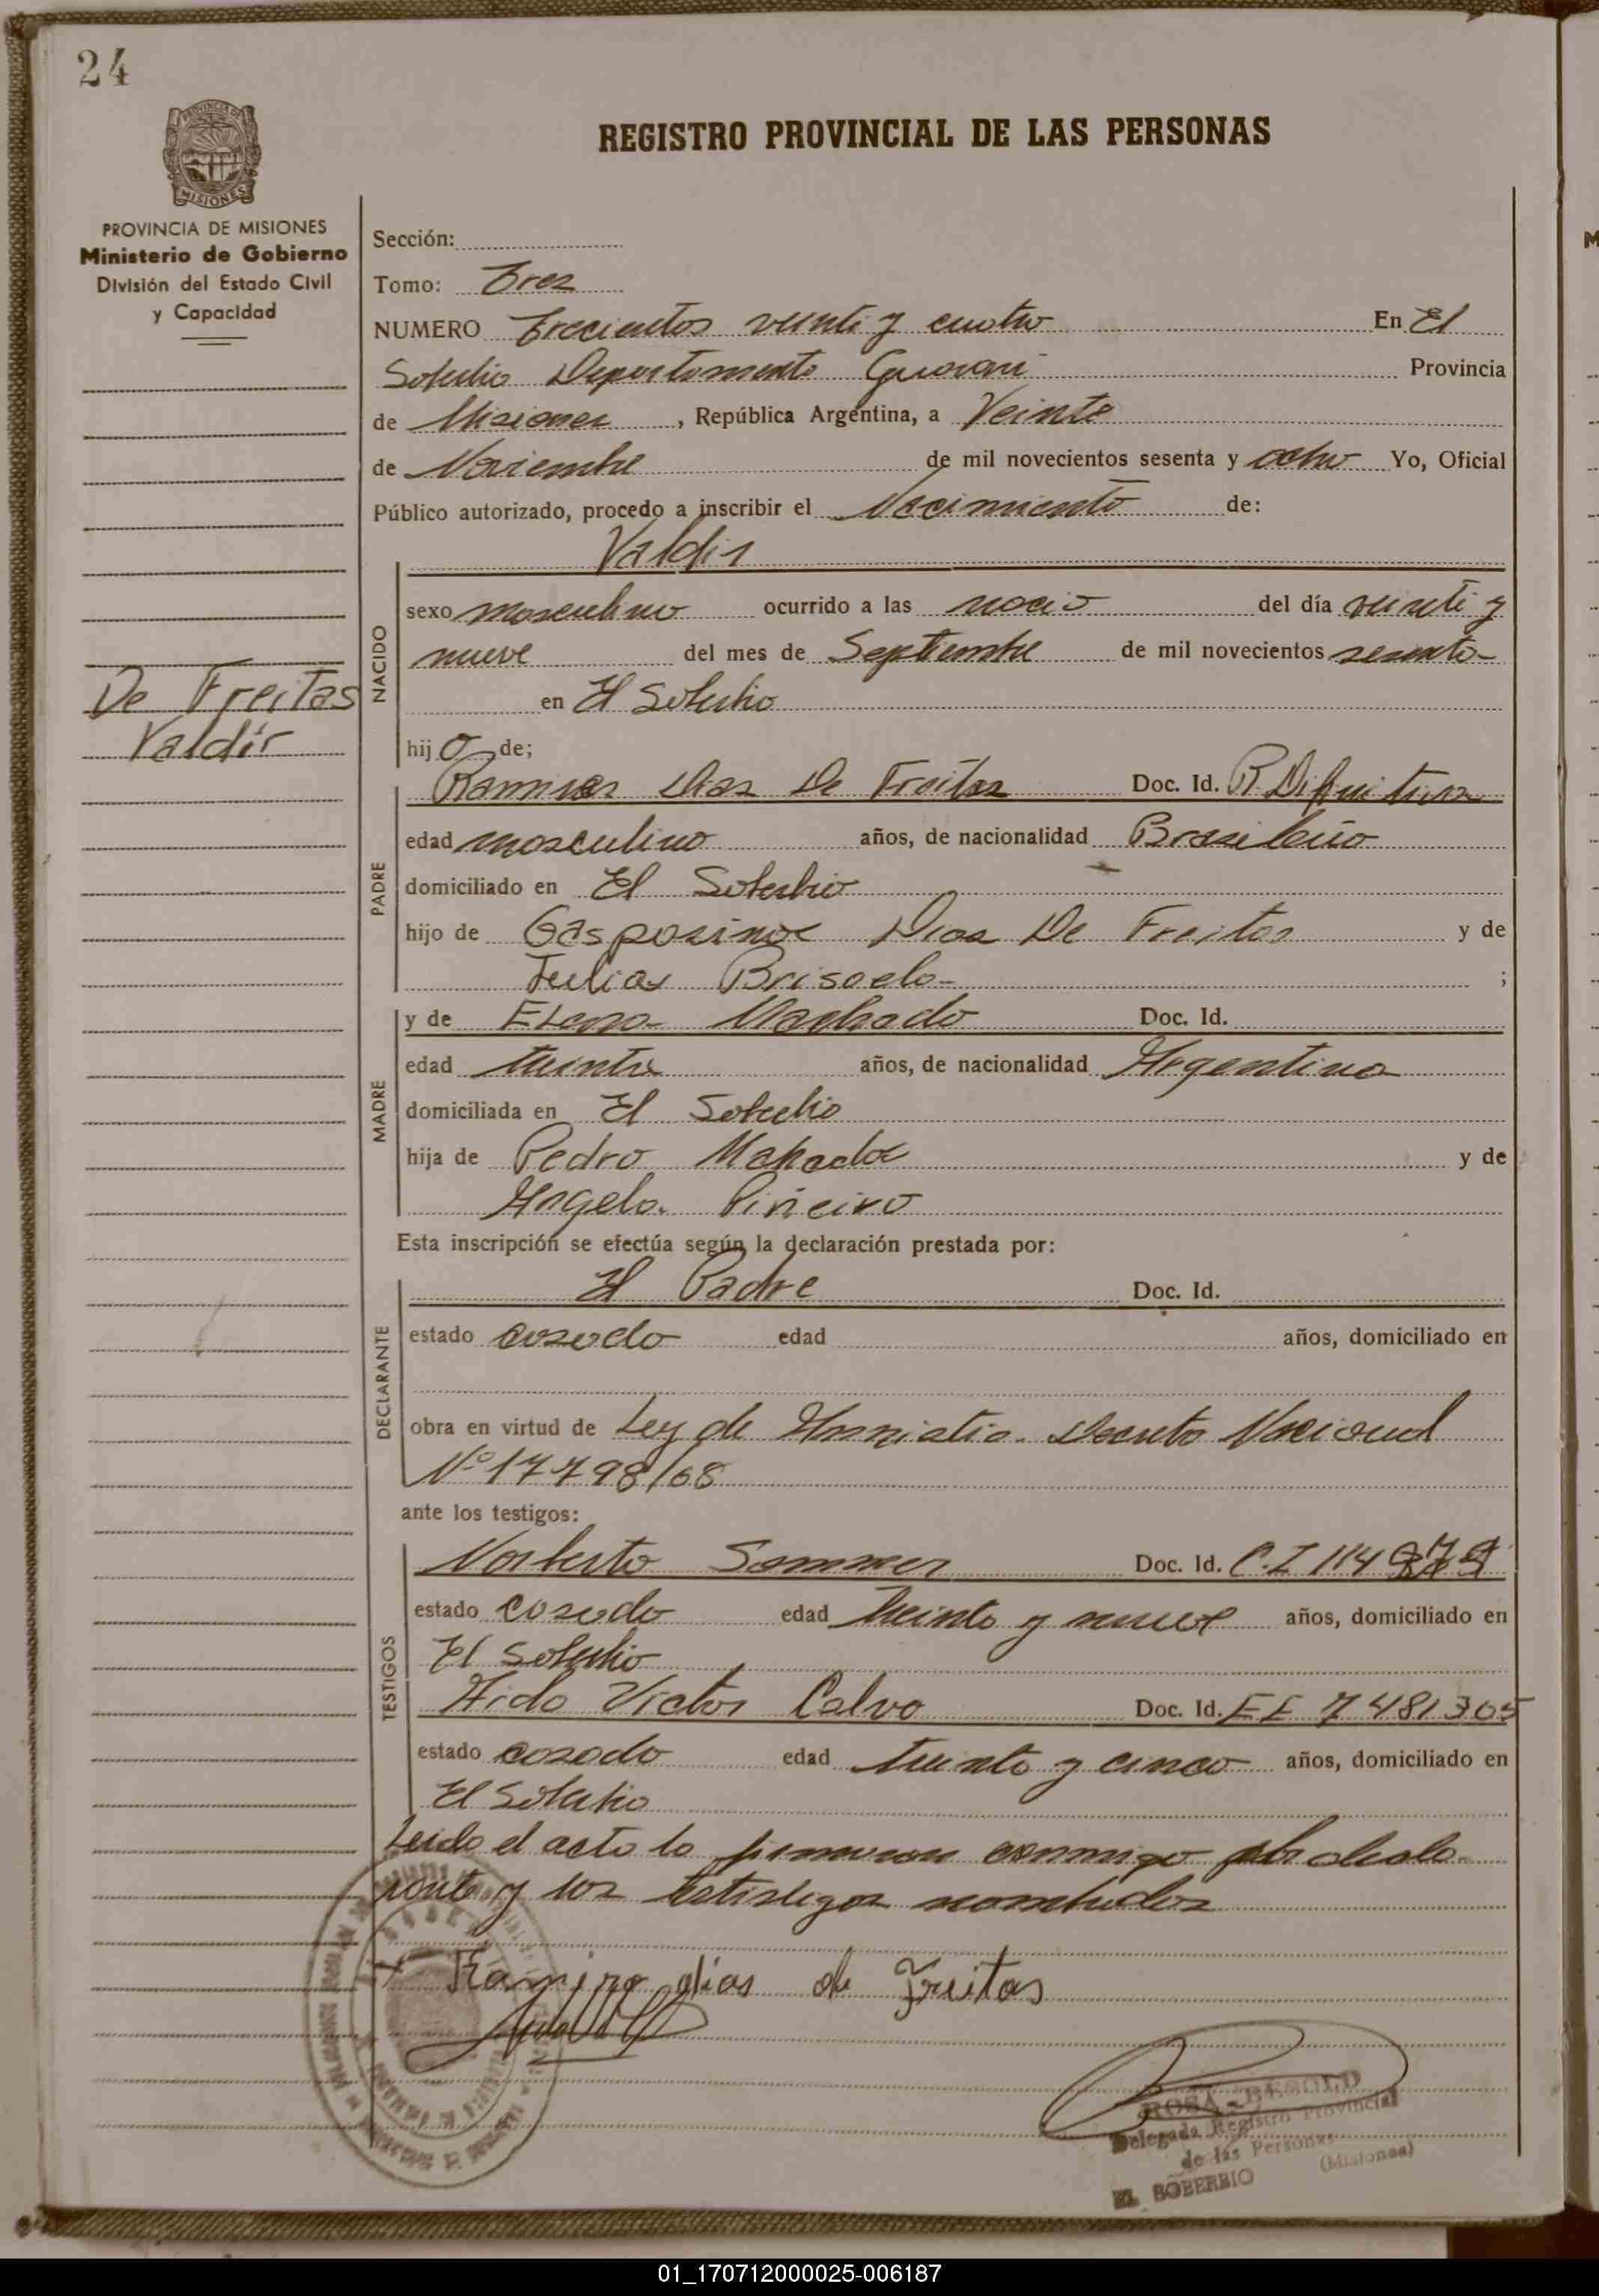 24
PROVINCIA DE MISIONES
PROVINCIA DE MISIONES
Ministerio de Gobierno
División del Estado Civil
y Capacidad
De Freitas
Valdir
REGISTRO PROVINCIAL DE LAS PERSONAS
Sección:
Tomo: Tres
NUMERO Trecientos veinti y cuatro En El
Soberbio Departamento Guarani Provincia
de Misiones , República Argentina, a Veinte
de Noviembre de mil novecientos sesenta y ocho Yo, Oficial
Público autorizado, procedo a inscribir el Nacimiento de:
Valdir
NACIDO
sexo masculino ocurrido a las del día veinti y
nueve del mes de Septiembre de mil novecientos sesenta
en El Soberbio
hij o de;
PADRE
Ramiro Dias De Freitas Doc. Id. R. Difinitiva
edad masculino años, de nacionalidad Brasileño
domiciliado en El Soberbio
hijo de Dias De Freitas y de
Julia ;
MADRE
y de Machado Doc. Id.
edad treinta años, de nacionalidad Argentina
domiciliada en El Soberbio
hija de Pedro Mahado y de
Angela Piñeiro
Esta inscripción se efectúa según la declaración prestada por:
DECLARANTE
El Padre Doc. Id.
estado casado edad años, domiciliado en
obra en virtud de Ley de Amnistia Decreto Nacional
Nº 17798/68
ante los testigos:
TESTIGOS
Norberto Sommer Doc. Id. C.I 114
estado casado edad treinta y nueve años, domiciliado en
El Soberbio
Aido Victor Calvo Doc. Id. 7481305
estado casado edad treinta y cinco años, domiciliado en
El Soberbio
Leido el acta la firmaron conmigo el decla
rante y los testigos nombrados
Ramiro dias de Freitas
ROSA BESOLD
Delegada Registro Provincial
de las Personas
EL SOBERBIO (Misiones)
01_170712000025-006187